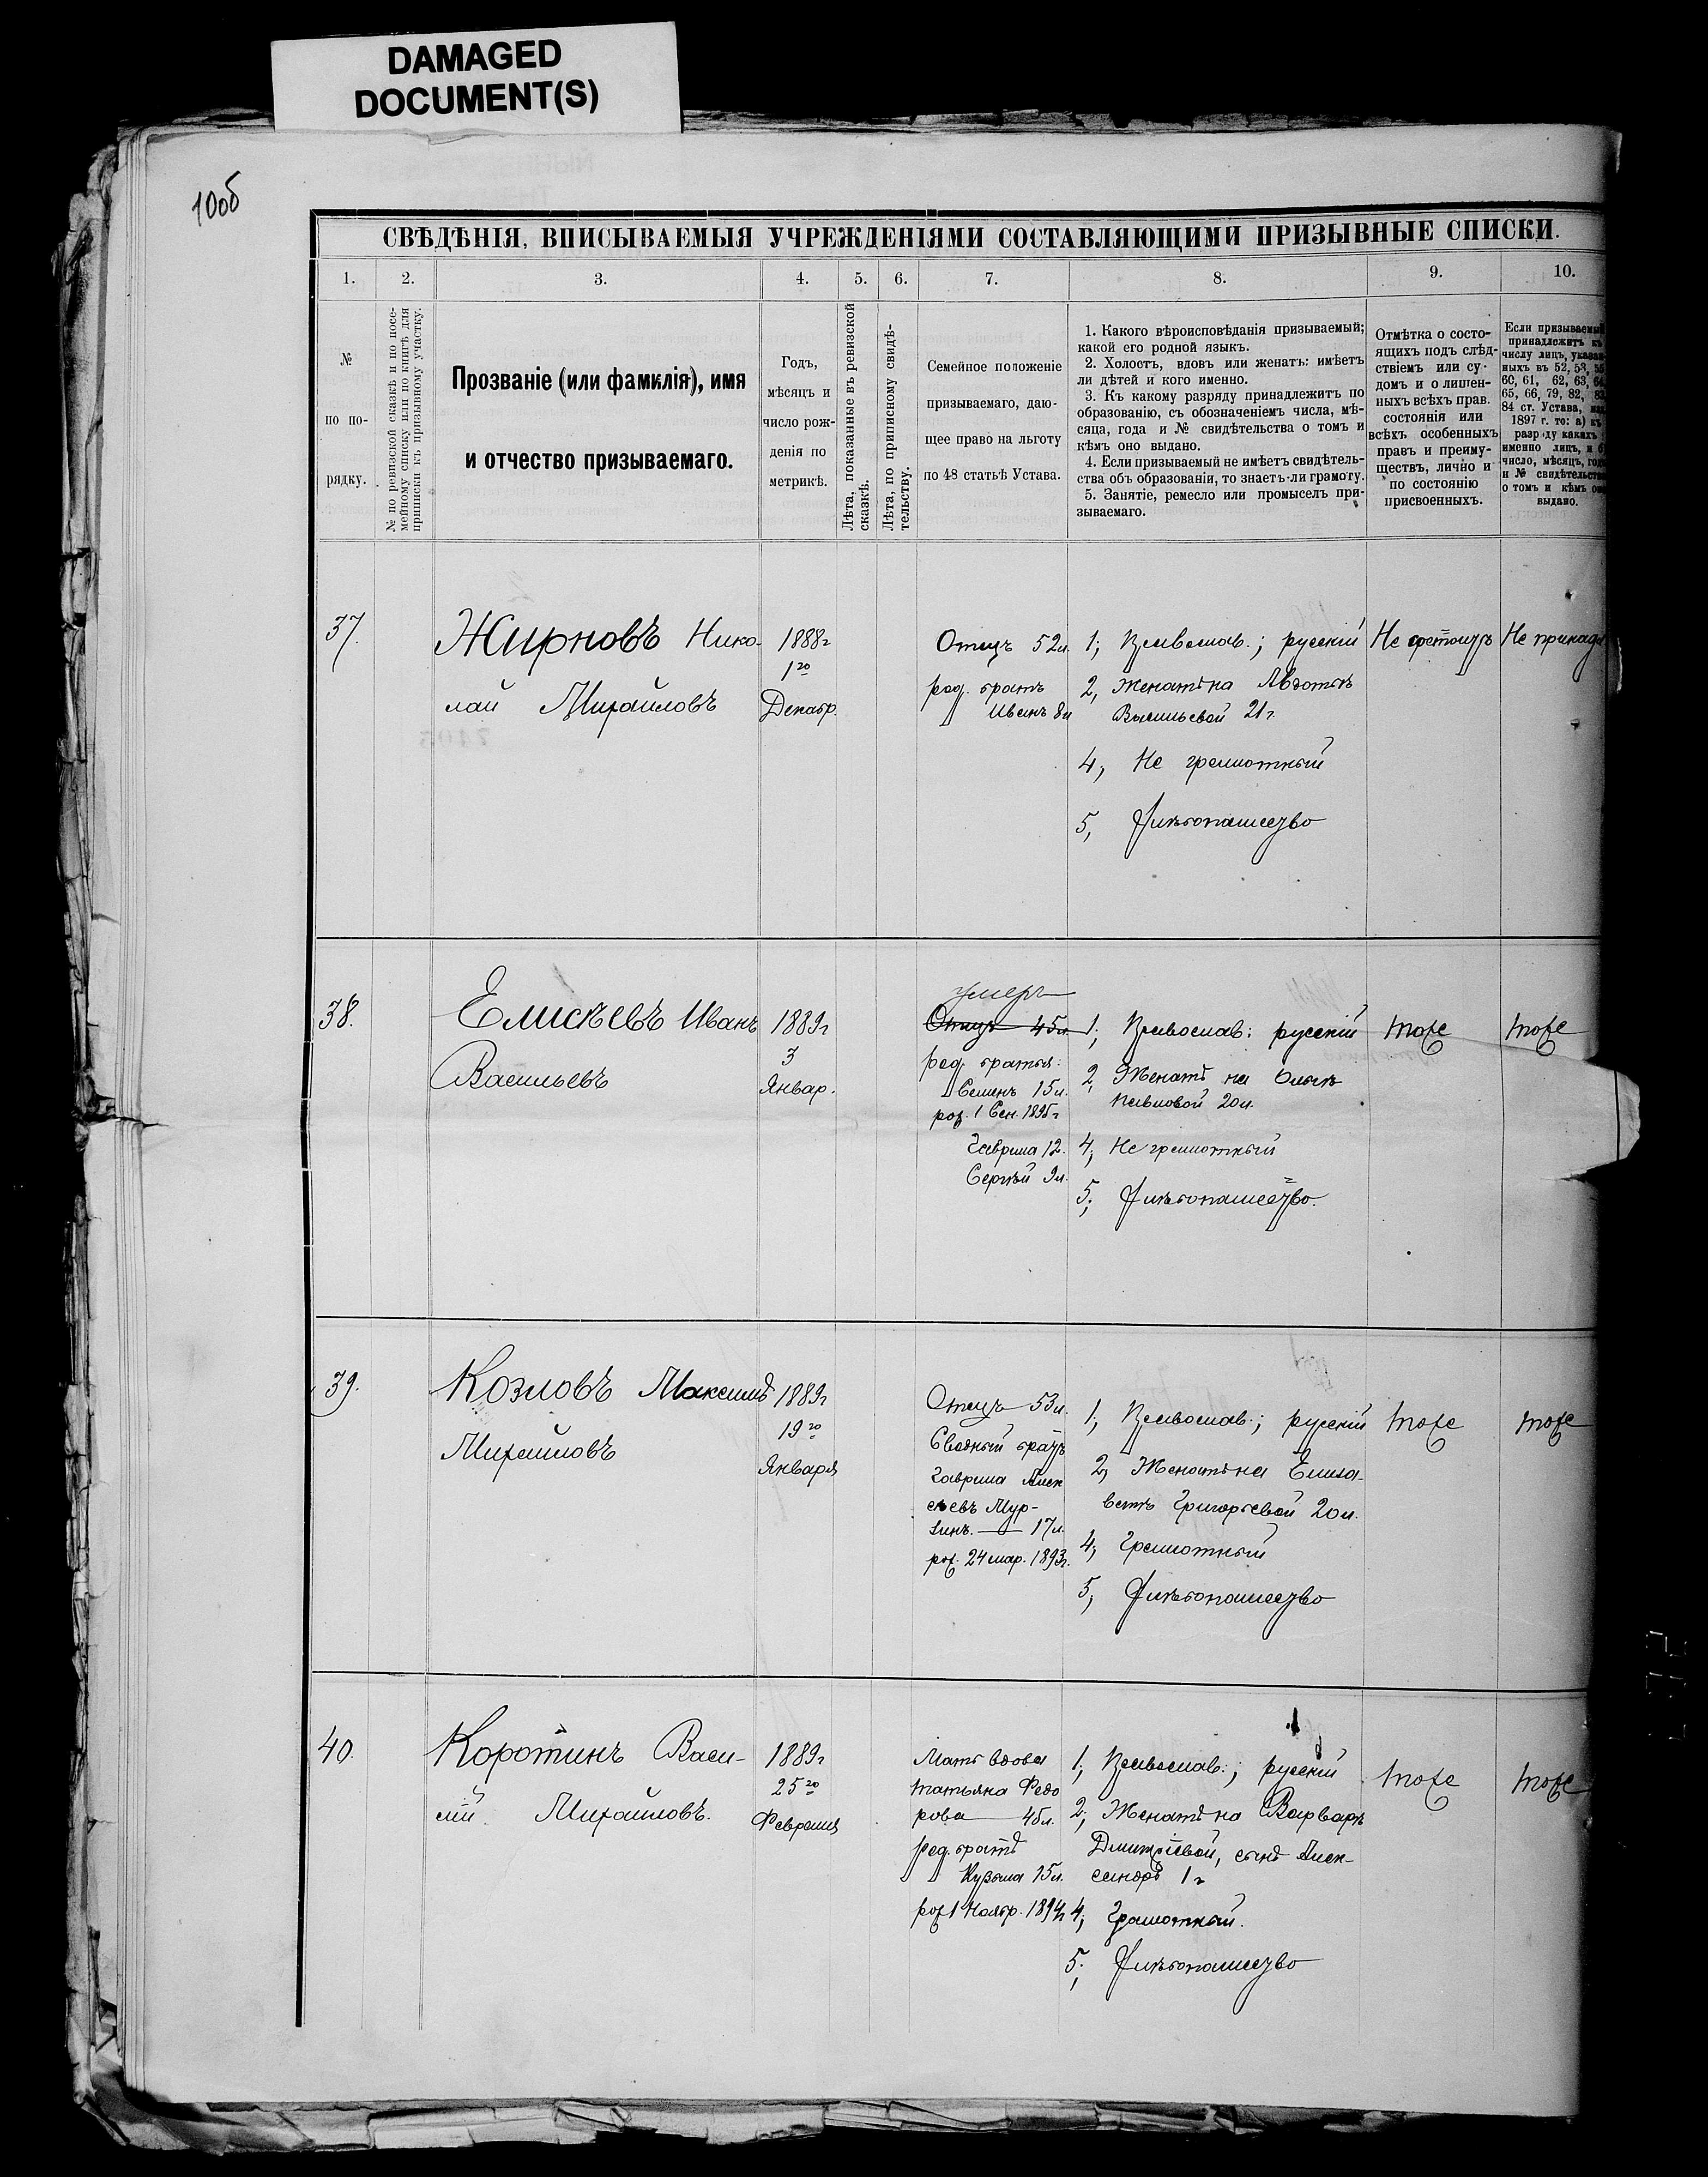 DAMAGED
DOCUMENT(S)
10об
СВѢДѢНІЯ, ВПИСЫВАЕМЫЯ УЧРЕЖДЕНІЯМИ СОСТАВЛЯЮЩИМИ ПРИЗЫВНЫЕ СПИСКИ.
1. 2. 3. 4. 5. 6. 7. 8. 9. 10.
№
по по-
рядку.
№ по ревизской сказкѣ и по посе-
мейному списку или по книгѣ для
приписки къ призывному участку.
Прозваніе (или фамилія), имя
и отчество призываемаго.
Годъ,
мѣсяцъ и
число рож-
денія по
метрикѣ.
Лѣта, показанные въ ревизской
сказкѣ.
Лѣта, по приписному свидѣ-
тельству.
Семейное положеніе
призываемаго, даю-
щее право на льготу
по 48 статьѣ Устава.
1. Какого вѣроисповѣданія призываемый;
какой его родной языкъ.
2. Холостъ, вдовъ или женатъ: имѣетъ
ли дѣтей и кого именно.
3. Къ какому разряду принадлежитъ по
образованію, съ обозначеніемъ числа, мѣ-
сяца, года и № свидѣтельства о томъ и
кѣмъ оно выдано.
4. Если призываемый не имѣетъ свидѣтель-
ства объ образованіи, то знаетъ-ли грамоту.
5. Занятіе, ремесло или промыселъ при-
зываемаго.
Отмѣтка о состо-
ящихъ подъ слѣд-
ствіемъ или су-
домъ и о лишен-
ныхъ всѣхъ прав.
состоянія или
всѣхъ особенныхъ
правъ и преиму-
ществъ, лично и
по состоянію
присвоенныхъ.
Если призываемый
принадлежитъ къ
числу лицъ, указан-
ныхъ въ 52, 53, 55
60, 61, 62, 63, 64
65, 66, 79, 82, 83
84 ст. Устава, изд.
1897 г. то: а) къ
разряду какихъ
именно лицъ, и б
число, мѣсяцъ, годъ
и № свидѣтельства
о томъ и кѣмъ оно
выдано.
37.
Жирновъ Нико-
лай Михайловъ
1888г
1го
Декабр.
Отецъ 52л.
род. братъ
Иванъ 8л
1; Православ.; русскій
2, Женатъ на Авдотьѣ
Васильевой 21г.
4, Не грамотный
5, Хлѣбопашество
Не состоитъ
Не принадл
38.
Елисѣевъ Иванъ
Васильевъ
1889г
3
Январ.
умеръ
Отецъ 45л.
род. братья:
Семенъ 15л.
рож. 1 Сен. 1895г
Гаврила 12.
Сергѣй 9л.
1; Православ: русскій
2, Женатъ на Ольгѣ
Павловой 20л.
4; Не грамотный
5; Хлѣбопашество.
тоже
тоже
39.
Козловъ Максимъ
Михайловъ
1889г
19го
Января
Отецъ 53л.
Сводный братъ
Гаврила Алек
сѣевъ Мур-
зинъ. — 17л.
рож. 24 мар. 1893г.
1; Православ.; русскій
2, Женатъ на Елиза-
ветѣ Григорьевой 20л.
4; Грамотный
5; Хлѣбопашество
тоже
тоже
40.
Коротинъ Васи-
лій Михайловъ.
1889г
25го
Февраля
Мать вдова
Татьяна Федо
рова — 45л.
род. братъ
Кузьма 15л.
рож 1 Ноябр. 1894г
1; Православ.; русскій
2; Женатъ на Варварѣ
Дмитріевой, сынъ Алек-
сандръ 1г
4; Грамотный.
5; Хлѣбопашество
тоже
тоже